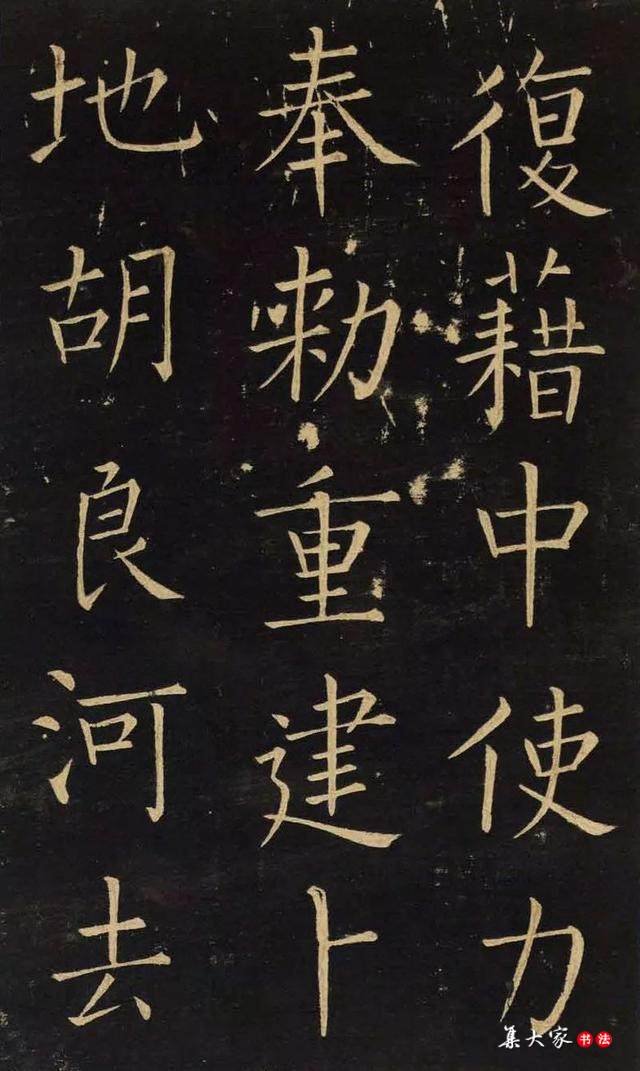 復藉中使力
奉勑重建卜
地胡良河去
集大家书法